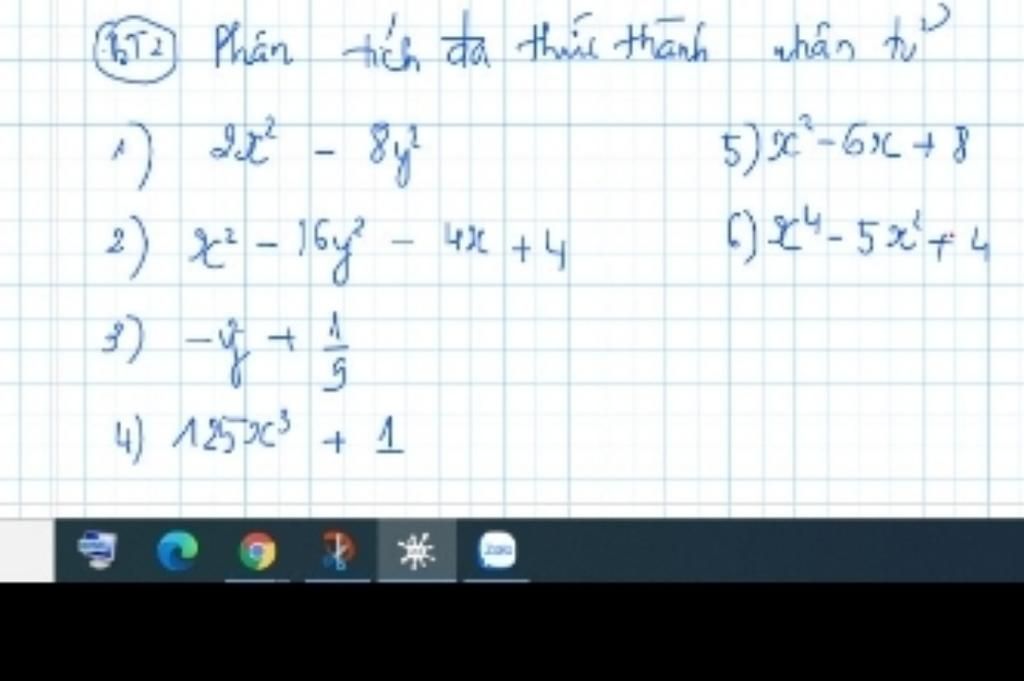 BT2 Phân tích đa thức thành nhân tử
1) 2x² - 8y²
2) x² - 16y² - 4x + 4
3) -y² + 1/9
4) 125x³ + 1
5) x² - 6x + 8
6) x⁴ - 5x² + 4